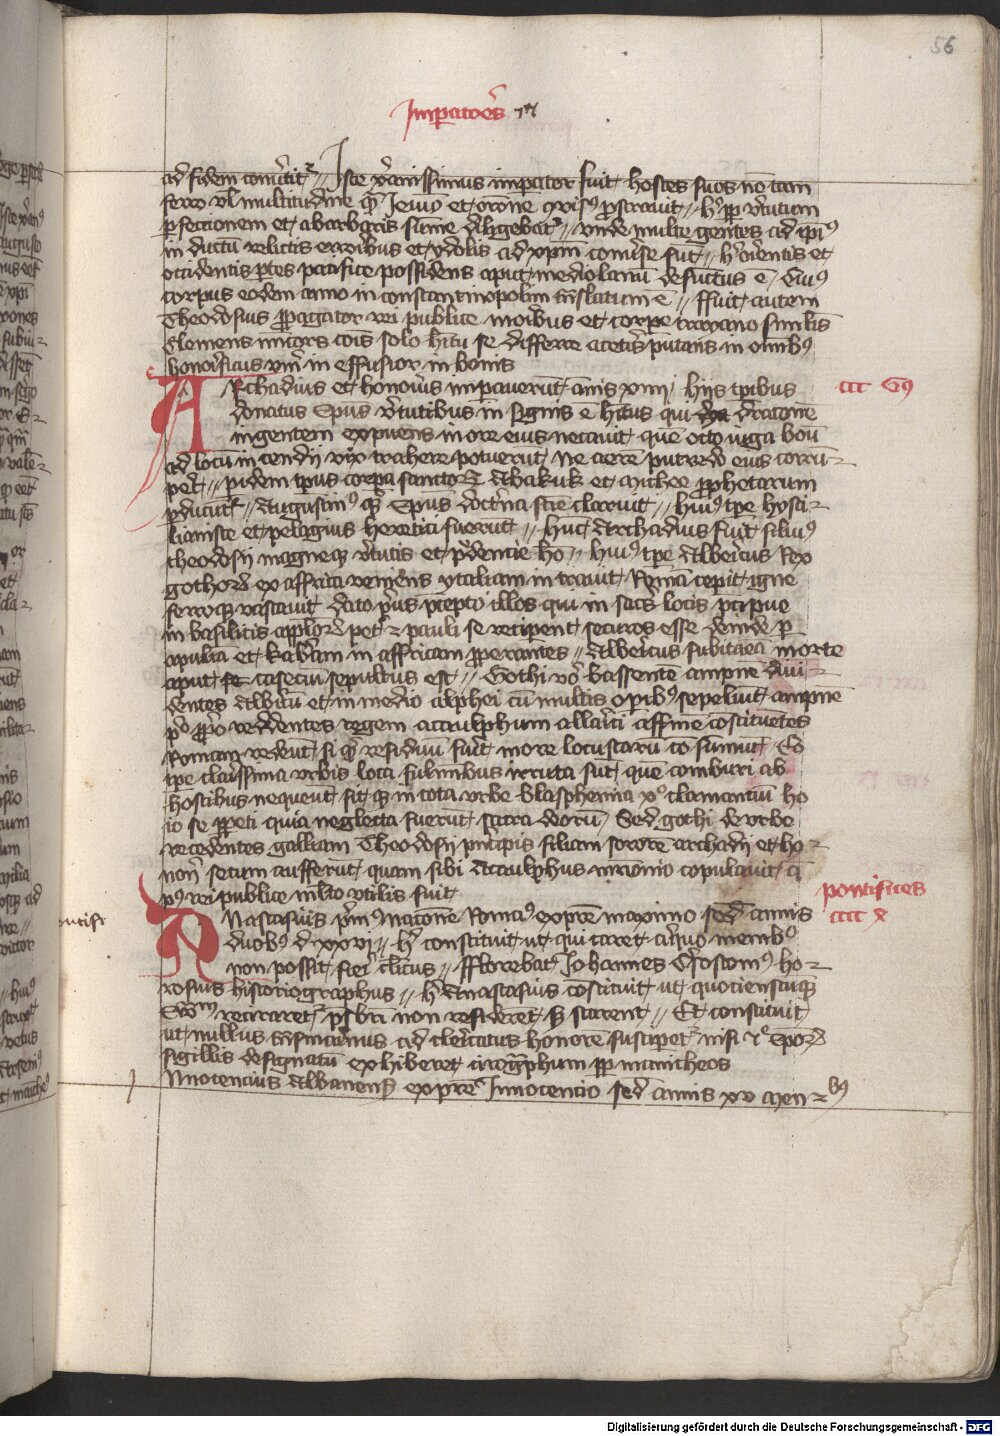 56
Imperatores
ad fidem convertitur // Iste xpianissimus imperator fuit hostes suos non tam
ferro vel multitudine quam ieiunio et oratione prostravit // hic propter virtutum
perfectionem et a barbaris summe diligebatur // unde multe gentes ad ipsius
in ductum relictis erroribus et ydolis ad xpm converse sunt // hic orientis et
occidentis partes pacifice possidens aput mediolanum defunctus est Cuius
corpus eodem anno in constantinopolim translatum est // ffuit autem
Theodosius propagator rei publice moribus et corpore trayano similis
Clemens communis solo habitu se differre a ceteris putans in omnibus
honorificus in effusior in bonis
Archadius et honorius imperaverunt annis xiiii hiis temporibus
donatus Epus virtutibus in signis est habitus qui draconem
ingentem expuens in ore eius necavit quem octo iuga boum
ad locum incendii vix trahere potuerunt ne aerem putredo eius corrum-
peret // pridem tempus corpora sanctorum Abakuk et Michee prophetarum
Augustinus Epus doctrina claruit // huius tempore
et pelagius heretici fuerunt // huic Archadius fuit filius
theodosii magneque virtutis et prudencie homo // huius tempore Albericus Rex
gothorum ex affrica veniens ytaliam intravit Romam cepit igne
ferroque vastavit dato prius precepto illos qui in sacris locis precipue
in basilicis apostolorum petri et pauli se reciperent securos esse deinde per
apuliam et kalabriam in affricam properantes // Albericus subitanea morte
aput casecium sepultus est // Gothi vero bassentem ampnem divi-
dentes Albericum et in medio alphei cum multis opibus sepeliunt ampnem
proprio reddentes regem attaulphum allarici affinem constituentes
Romam redeunt si quid residuum fuerat more locustarum consumunt Eo
tempore clarissima urbis loca fulminibus irruta sunt quem comburi ab
hostibus nequeunt fitque in tota urbe blasphemia clamantium
se perpeti quia neglecta fuerunt sacra deorum Sed gothi de urbe
recedentes galliam Theodosii principis filiam sororem archadii et ho-
norii secum aufferunt quam sibi Attaulphus matrimonio copulavit
rei publice multo utilis fuit
Anastasius primus natione Romanus ex patre maximo sedit annis
duobus diebus xxvi // hic constituit ut qui caret aliquo membro
non possit fieri clericus // fflorebat Iohannes Crisostomus ho-
rosius historiographus // hic Anastasius constituit ut quotienscumque
ewangelium recitaretur presbiteri non resideret sed starent // Et constituit
ut nullus transmarinus ad clericatus honorem susciperetur nisi episcoporum
sigillis designatum exhiberet cirographum propter manicheos
Innocencius Albanensis ex patre Innocentio sedit annis xv mensibus
pontifices
Digitalisierung gefördert durch die Deutsche Forschungsgemeinschaft - DFG